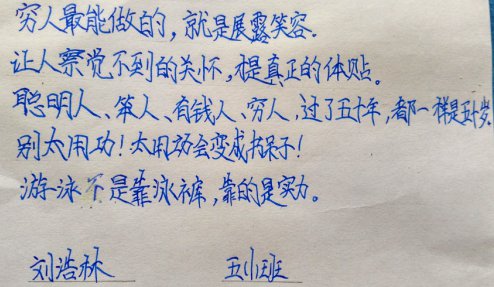 穷人最能做的，就是展露笑容.
让人察觉不到的关怀，才是真正的体贴。
聪明人、笨人、有钱人、穷人，过了五十年，都一样是五十岁.
别太用功！太用功会变成书呆子！
游泳不是靠泳裤，靠的是实力。
刘浩林 五（1）班